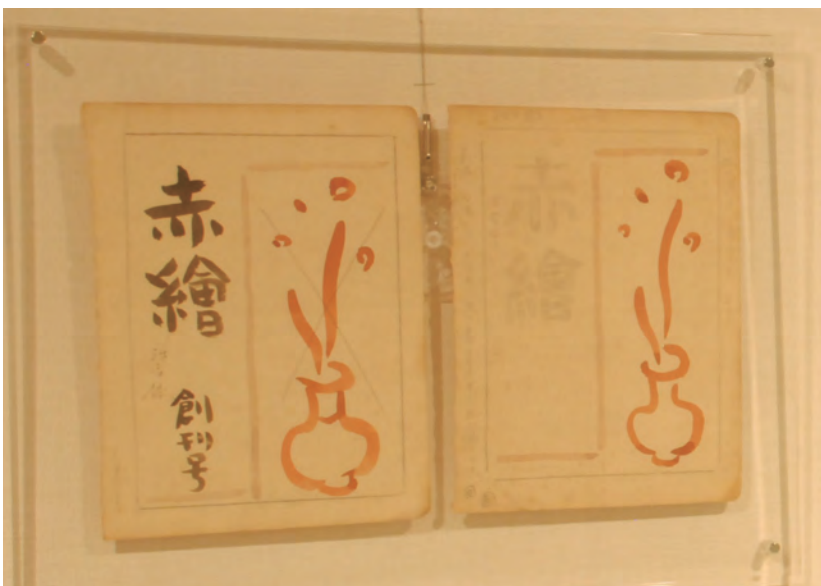 赤繪
創刊号
赤繪